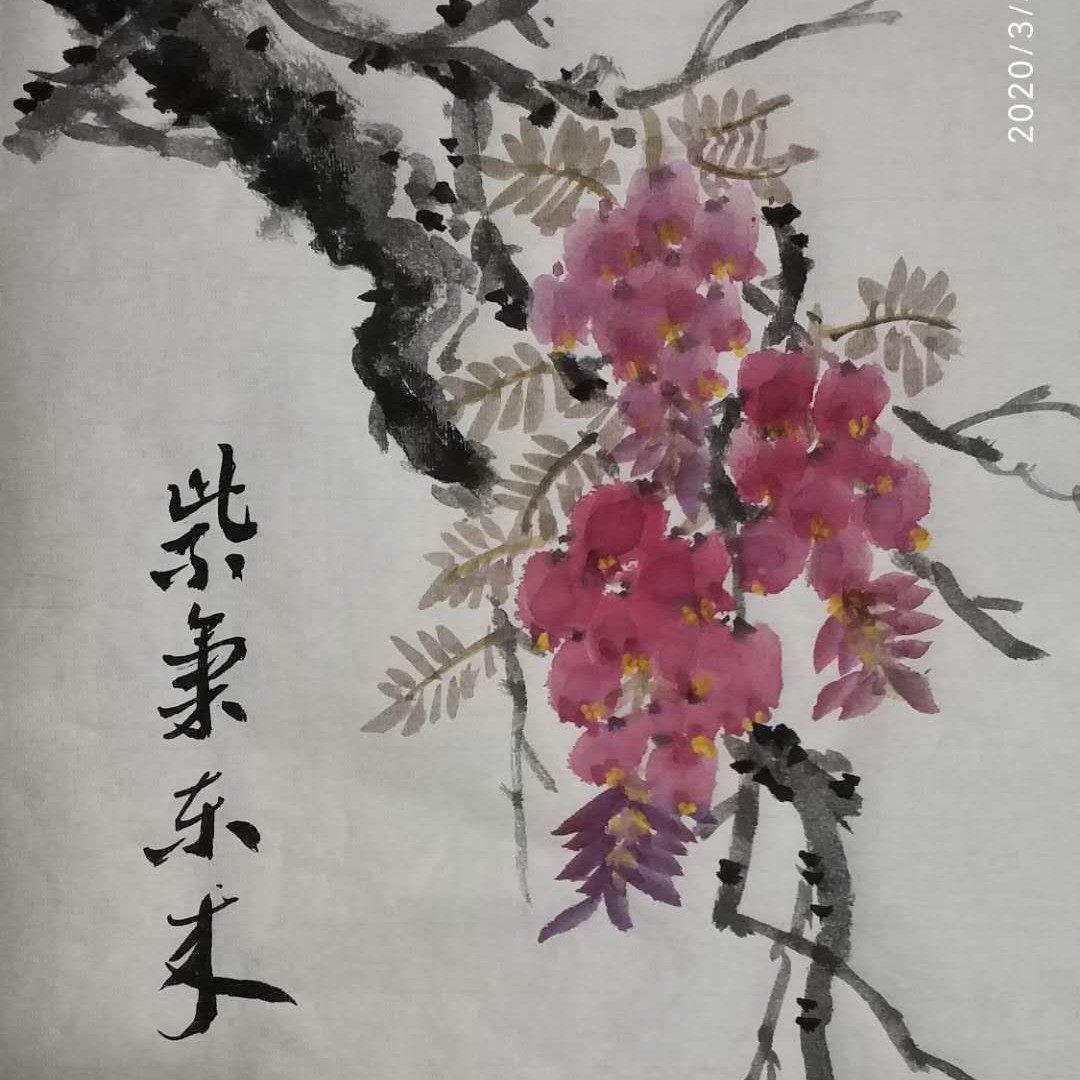 紫氣东来
2020/3/